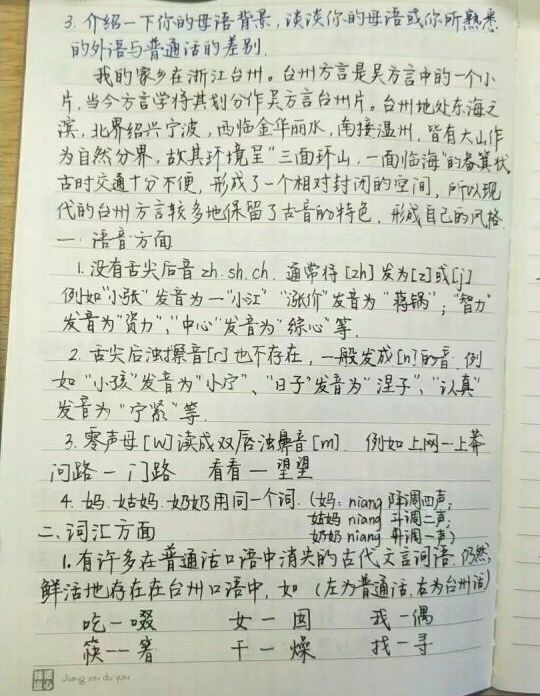 3. 介绍一下你的母语背景，谈谈你的母语或你所熟悉
的外语与普通话的差别.
我的家乡在浙江台州。台州方言是吴方言中的一个小
片，当今方言学将其划分作吴方言台州片。台州地处东海之
滨，北界绍兴宁波，西临金华丽水，南接温州，皆有大山作
为自然分界，故其环境呈“三面环山，一面临海”的畚箕状
古时交通十分不便，形成了一个相对封闭的空间，所以现
代的台州方言较多地保留了古音的特色，形成自己的风格.
一. 语音方面
1. 没有舌尖后音 zh. sh. ch. 通常将[zh]发为[z]或[j]
例如“小张”发音为一“小江”“涨价”发音为“蒋锅”；“智力”
发音为“资力”、“中心”发音为“综心”等.
2. 舌尖后浊擦音[r]也不存在，一般发成[n]的音. 例
如“小孩”发音为“小宁”、“日子”发音为“涅子”、“认真”
发音为“宁紧”等.
3. 零声母[W]读成双唇浊鼻音[m]. 例如上网一上莽
问路一门路 看看一望望
4. 妈. 姑妈. 奶奶用同一个词. (妈: niang 降调四声;
姑妈 niang 升调二声;
奶奶 niang 升调一声)
二. 词汇方面
1. 有许多在普通话口语中消失的古代文言词语. 仍然
鲜活地存在在台州口语中，如 (左为普通话, 右为台州话)
吃一啜 女一囡 我一偶
筷一箸 干一燥 找一寻
Jiang xin du yun